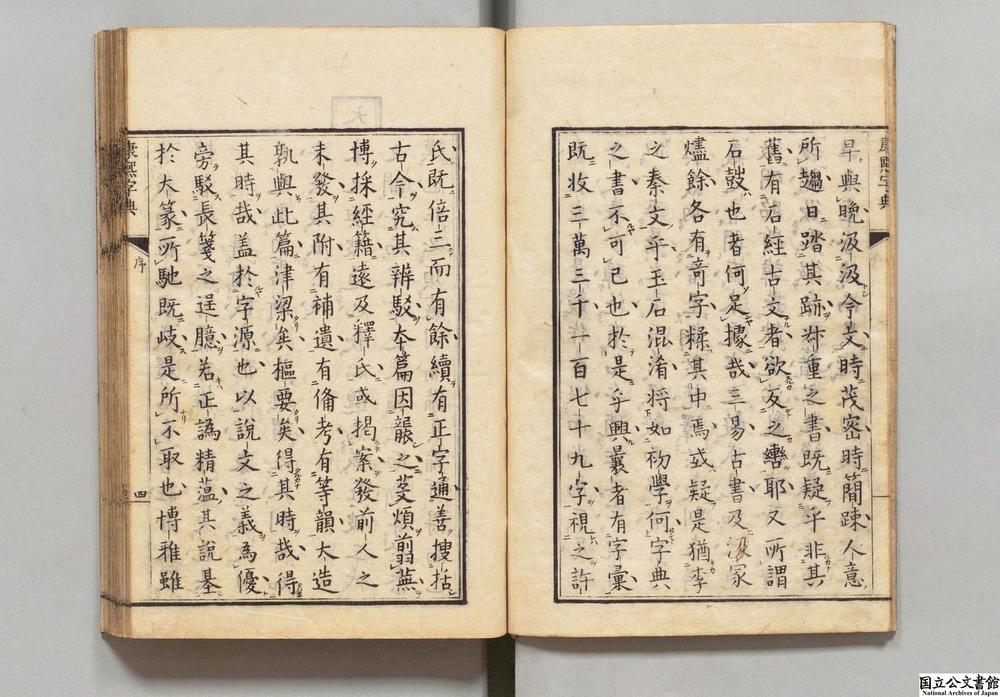 康熙字典
早與晩汲汲今文時茂密時簡踈人意
所趨日踏其跡神重之書既疑乎非其
舊有石經古文者欲友之轡耶又所謂
石鼓也者何足據哉三易古書及汲冢
燼餘各有奇字糅其中焉或疑是猶李
之秦文乎玉石混淆将如初學何字典
之書不可已也於是乎興曩者有字彙
既收三萬三千一百七十九字視之許
氏既倍三而有餘續有正字通善搜括
古今究其辨駁本篇因龍之芟煩翦蕪
博採經籍遠及釋氏或揭案發前人之
未發其附有補遺有俻考有等韻大造
孰與此篇津梁矣樞要矣得其時哉得
其時哉盖於字源也以說文之義為優
旁駁長箋之逞臆若正譌精薀其說基
於大篆所馳既岐是所不取也博雅雖
康熙字典
序
四
国立公文書館
National Archives of Japan